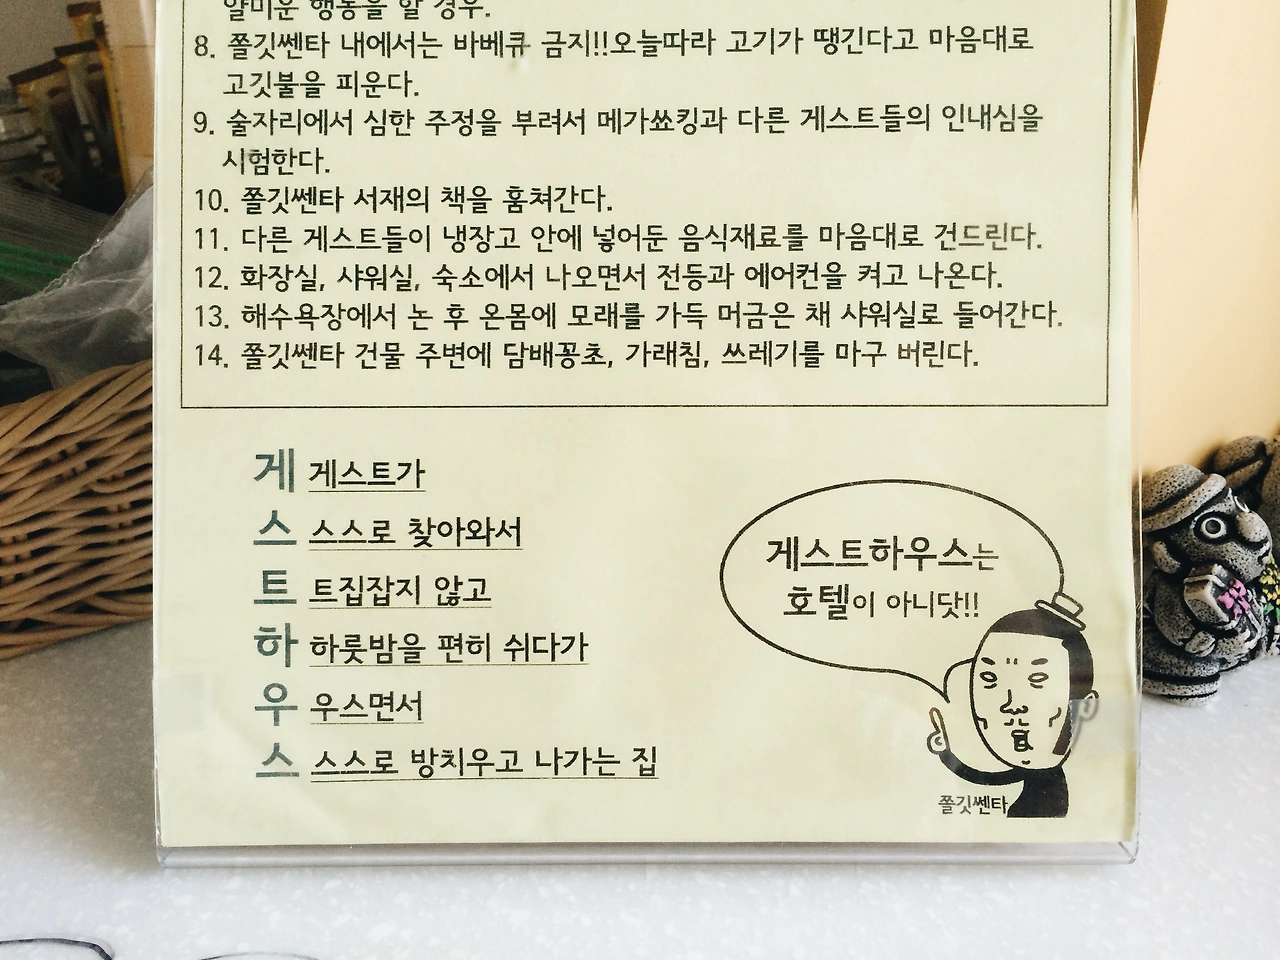 얄미운 행동을 할 경우.
8. 쫄깃쎈타 내에서는 바베큐 금지!!오늘따라 고기가 땡긴다고 마음대로
고깃불을 피운다.
9. 술자리에서 심한 주정을 부려서 메가쑈킹과 다른 게스트들의 인내심을
시험한다.
10. 쫄깃쎈타 서재의 책을 훔쳐간다.
11. 다른 게스트들이 냉장고 안에 넣어둔 음식재료를 마음대로 건드린다.
12. 화장실, 샤워실, 숙소에서 나오면서 전등과 에어컨을 켜고 나온다.
13. 해수욕장에서 논 후 온몸에 모래를 가득 머금은 채 샤워실로 들어간다.
14. 쫄깃쎈타 건물 주변에 담배꽁초, 가래침, 쓰레기를 마구 버린다.
게 게스트가
스 스스로 찾아와서
트 트집잡지 않고
하 하룻밤을 편히 쉬다가
우 우스면서
스 스스로 방치우고 나가는 집
게스트하우스는
호텔이 아니닷!!
쫄깃쎈타